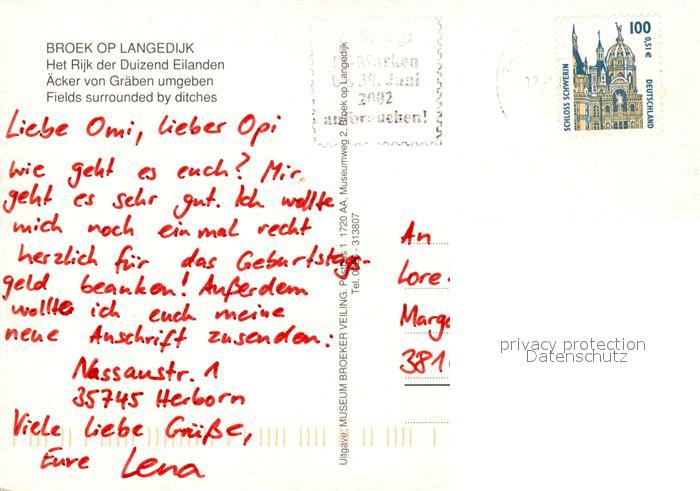 BROEK OP LANGEDIJK
Het Rijk der Duizend Eilanden
Äcker von Gräben umgeben
Fields surrounded by ditches
Liebe Omi, lieber Opi
wie geht es euch? Mir
geht es sehr gut. Ich wollte
mich noch einmal recht
herzlich für das Geburtstags-
geld beanken! Außerdem
wollte ich euch meine
neue Anschrift zusenden:
Nassaustr. 1
35745 Herborn
Viele liebe Grüße,
Eure Lena
Uitgave: MUSEUM BROEKER VEILING, Postbus 1 1720 AA, Museumweg 2, Broek op Langedijk
Tel. - 313807
-Marken
30. Juni
2002
100
0,51 €
SCHLOSS SCHWERIN
DEUTSCHLAND
An
Lore
Marg
381
privacy protection
Datenschutz